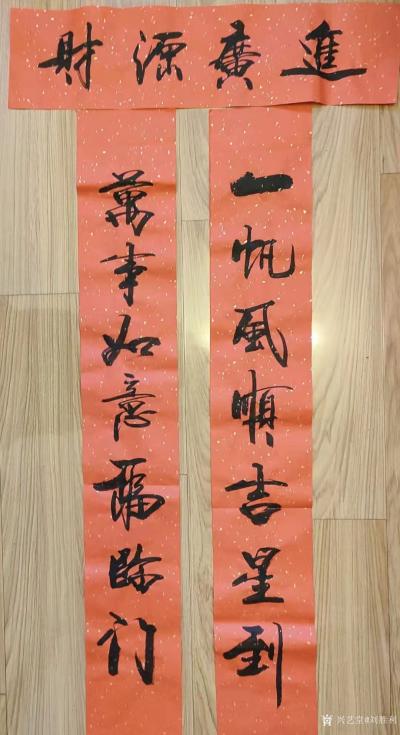 財源廣進
一帆風順吉星到
萬事如意福臨门
兴艺堂@刘胜利